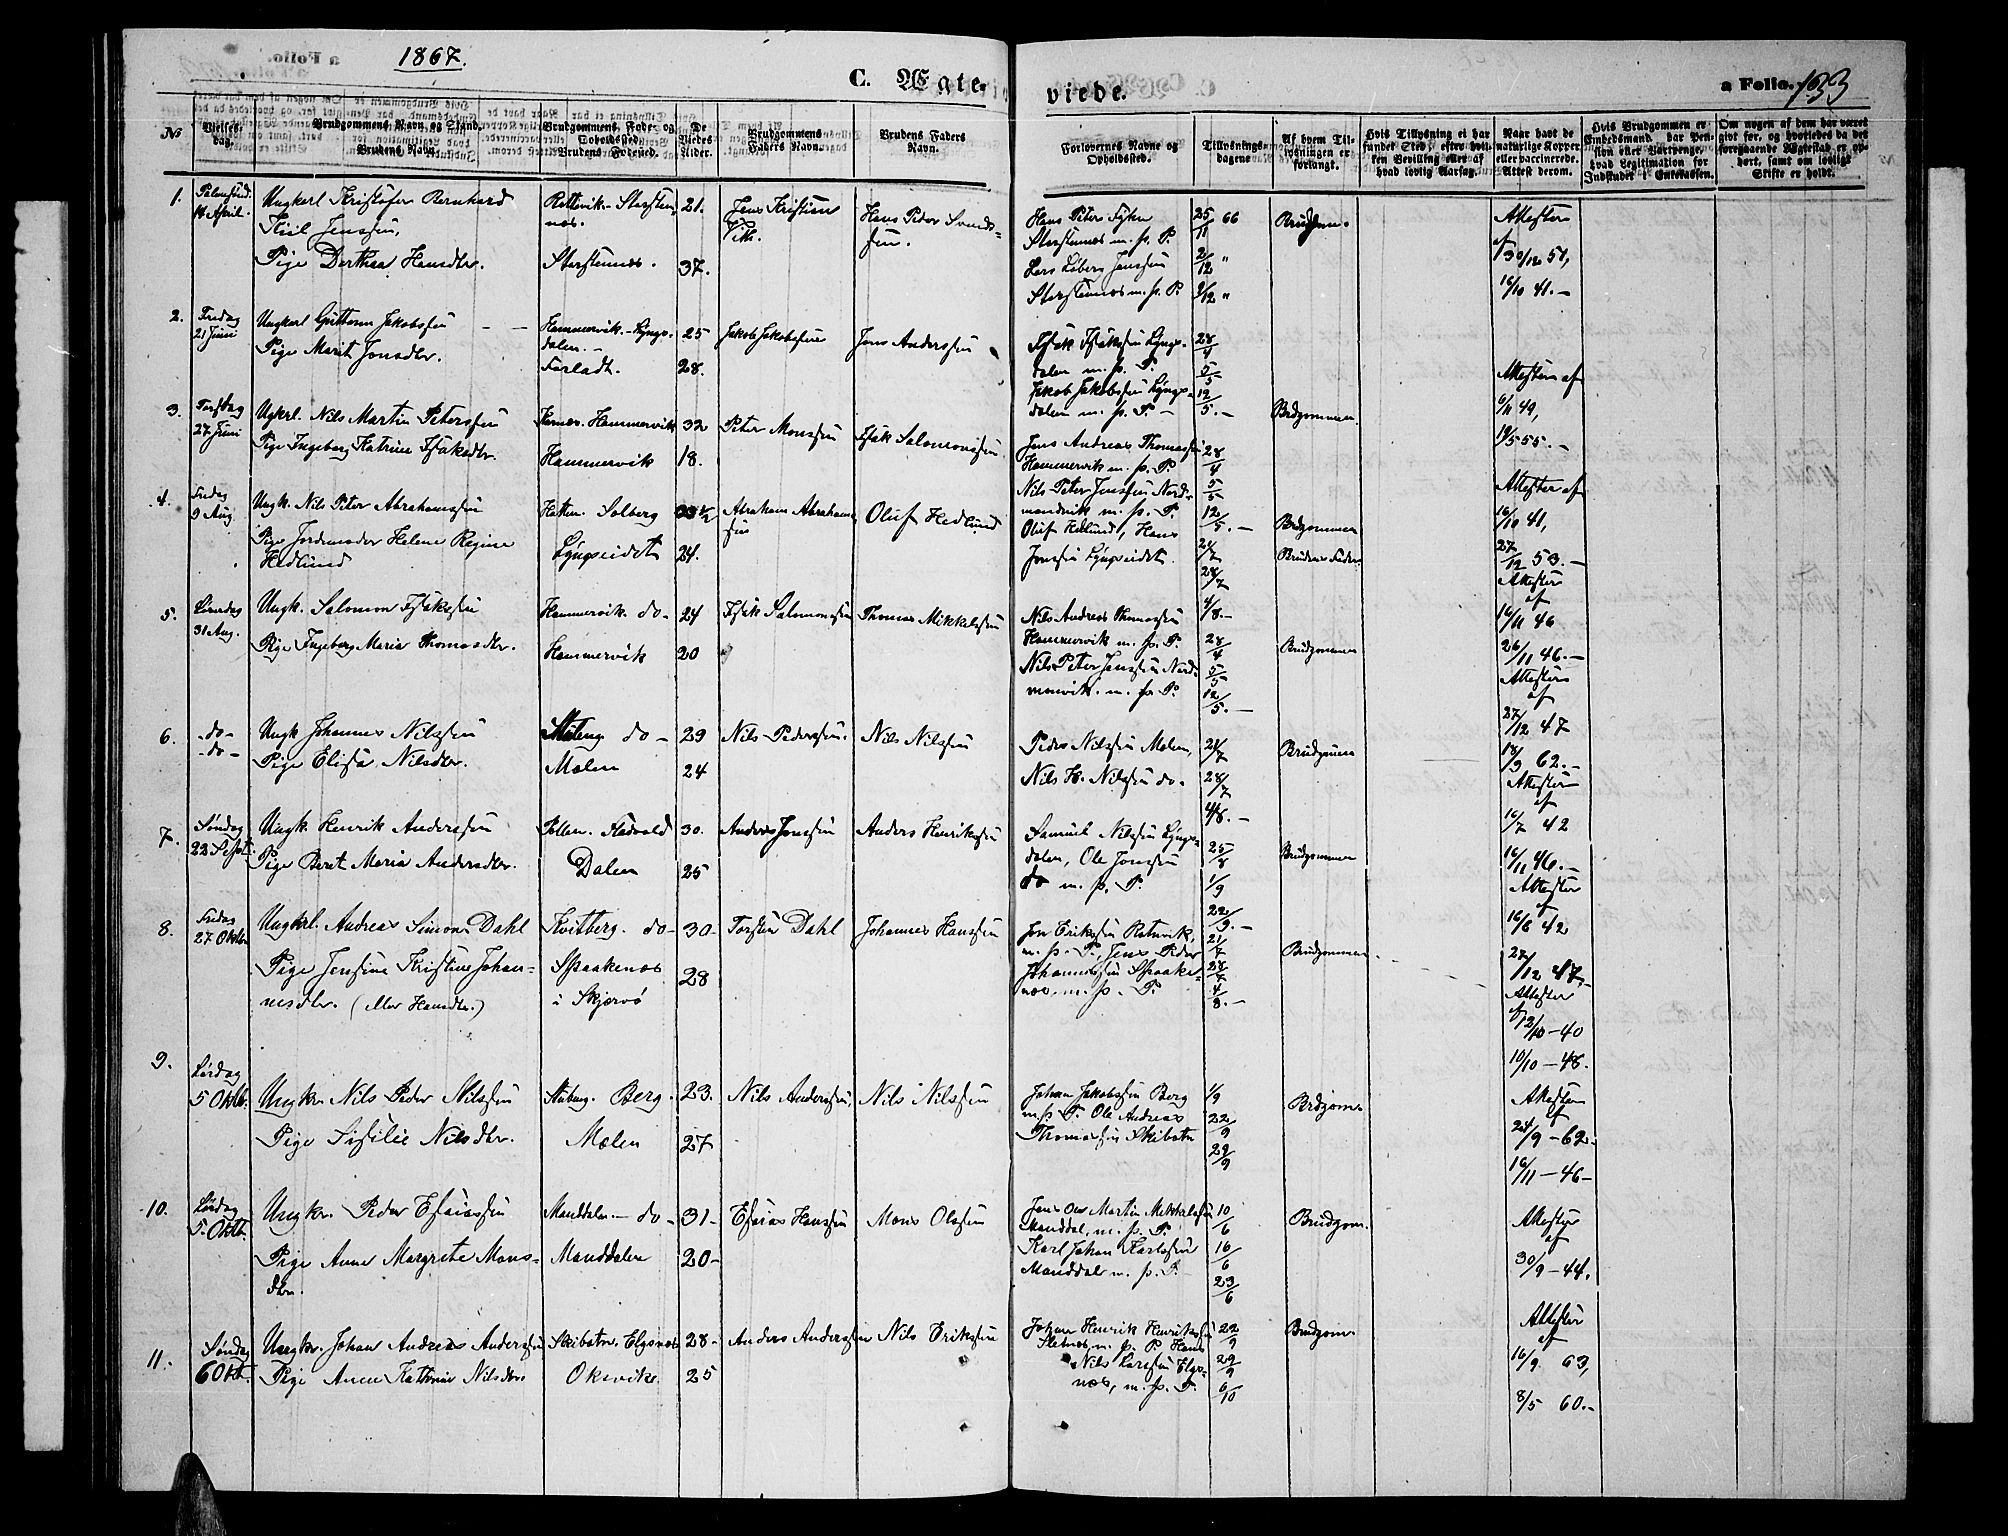 1867.
C. Ægte-
viede.
a Folio. 133
No
Vielses-
dag.
Brudgommens Navn og Stand.
Brudens Navn.
Brudgommens Føde- og
Opholdssted.
Brudens Fødested.
De
Viedes
Alder.
Brudgommens
Faders Navn.
Brudens Faders
Navn.
Forlovernes Navne og
Opholdssted.
Tillysnings-
dagene.
Af hvem Til-
lysningen er
forlangt.
Hvis Tillysning ei har
fundet Sted, efter hvil-
ken Bevilling eller af
hvad lovlig Aarsag.
Naar havt de
naturlige Kopper
eller vaccinerede.
Attest derom.
Hvis Brudgommen er
Embedsmand har Pen-
sion eller Vartpenge,
hvad Legitimation for
Indskuder i Enkekassen.
Om nogen af dem har været
gift før, og hvorledes da det
foregaaende Ægteskab er op-
hørt, samt om lovligt
Skifte er holdt.
1.
14 April.
Ungkarl Kristofer Bernhard
Jenssen,
Pige Dorthea Hansdtr.
Storstennes.
21.
37.
Jens Kristian
Hans Peder Svends-
sen.
Hans Peter
Storstennes m. p. P.
Lars Jenssen
Storstennes m. p. P.
25/11 66
2/12 "
9/12 "
Brudgom.
Attester
af
30/12 51,
16/10 41.-
2.
Fredag
21 Juni
Ungkarl Guttorm Jakobssen
Pige Marit Jonsdtr.
Hammervik.-Lyngs-
dalen.-
Forladt.
25
28.
Jakob Jakobssen
Jons Anderssen
Isak Isakssen Lyngs-
dalen m. p. P.
Jakob Jakobssen Lyngs-
dalen m. p. P.-
28/4
5/5
12/5.-
Brdgommen
Attester af
6/11 49,
19/5 55.-
3.
Torsdag
27 Juni
Ugkrl. Nils Martin Peterssen
Pige Ingeborg Katrine Isaksdtr.
Hammervik
Hammervik
32
18.
Peter Monssen
Isak Salomonssen
Jens Andreas Thomassen
Hammervik m. p. P.
Nils Peter Jenssen Nord-
mandvik m. p. P.
28/4
5/5
12/5.-
Brdgommen
Attester af
16/10 41,
27/12 53.-
4.
Fredag
9 Aug.
Ungk. Nils Peter Abrahamssen
Pige Jordemoder Helene Regine
Hedlund
Solberg
Lyngseidet
24.
Abraham Abraham-
sen
Oluf Hedlund
Oluf Hedlund, Hans
Jonssen Lyngseidet.
21/7
28/7
4/8.-
Brudens Fader
Attester
af
16/11 46
26/11 46.-
5.
Lørdag
31 Aug.
Ungk. Salomon Isakssen
Pige Ingeborg Maria Thomasdtr.
Hammervik. do-
Hammervik
24
20
Isak Salomonssen
Thomas Mikkelssen
Nils Andreas Thomassen
Hammervik m. p. P.
Nils Peter Jenssen Nord-
manvik. m. p. P.
28/4
5/5
12/5.-
Brudgommen
Attester
af
27/12 47
18/9 62.-
6.
-do-
-do-
Ungk Johannes Nilssen
Pige Elisa Nilsdtr.
do-
Mælen
29
24
Nils Pederssen.
Nils Nilssen
Peder Nilssen Mælen,
Nils H. Nilssen do.
21/7
28/7
4/8.-
Brudgommen
Attester
af
16/7 42
16/11 46.-
7.
Søndag
22 Sept.
Ungk. Henrik Anderssen
Pige Beret Maria Andersdtr.
Pollen.
Dalen
30.
25
Anders Jonssen
Anders Henrikssen
Samuel Nilssen Lyngs-
dalen, Ole Jonssen
do m. p. P.
25/8
1/9
22/9.-
Brudgommen
Attester
af
16/6 42
27/12 47.-
8.
Fredag
27 Oktbr.
Ungkrl. Andreas Simons Dahl
Pige Jensine Kristine Johan-
nesdtr. (eller Hansdtr.)
Kvitberg. do-
Spaakenæs
i Skjervø
30-
28
Torsten Dahl
Johannes Hanssen
Jon Erikssen Rotnvik,
m. p. P., Jens Peder
Johannessen Spaake-
næs, m. p. P.
21/7
28/7
4/8.-
Brudgommen
Attester
af
12/10-40
10/10-48.
9.
Lørdag
5 Oktb.
Ungkr. Nils Peder Nilssen
Pige Sisilie Nilsdtr.
Berg.
Mælen
23.
27
Nils Anderssen,
Nils Nilssen
Johan Jakobssen Berg
m. p. P. Ole Andreas
Thomassen Skibotn
1/9
22/9
29/9
Brdgom.
Attester
af
24/9-62-
16/11-46-
10.
Lørdag
5. Oktb.
Ungkr. Peder Esaiassen
Pige Anne Margrete Mons-
dtr.
Manddalen- do-
Manddalen
31-
20-
Esaias Hanssen
Mons Olssen
Jens Martin Mikkelssen
Manddal, m. p. P.
Karl Johan Karlssen
Manddal m. p. P.
10/6
16/6
23/6
Brudgom.
Attester
af
30/9-44.
11.
Søndag
6 Okt.
Ungkr. Johan Andreas Anderssen
Pige Anne Katrine Nilsdtr.
Skibotn. Elgsnæs
Oksvik.
28-
25
Anders Anderssen
Nils Erikssen
Johan Henrik Henrikssen
Sletnæs m. p. P. Hans
Nils Larssen Elgs-
næs, m. p. P.
22/9
29/9
6/10
Brudgom.
Attester
af
16/9 63,
8/5 60.-